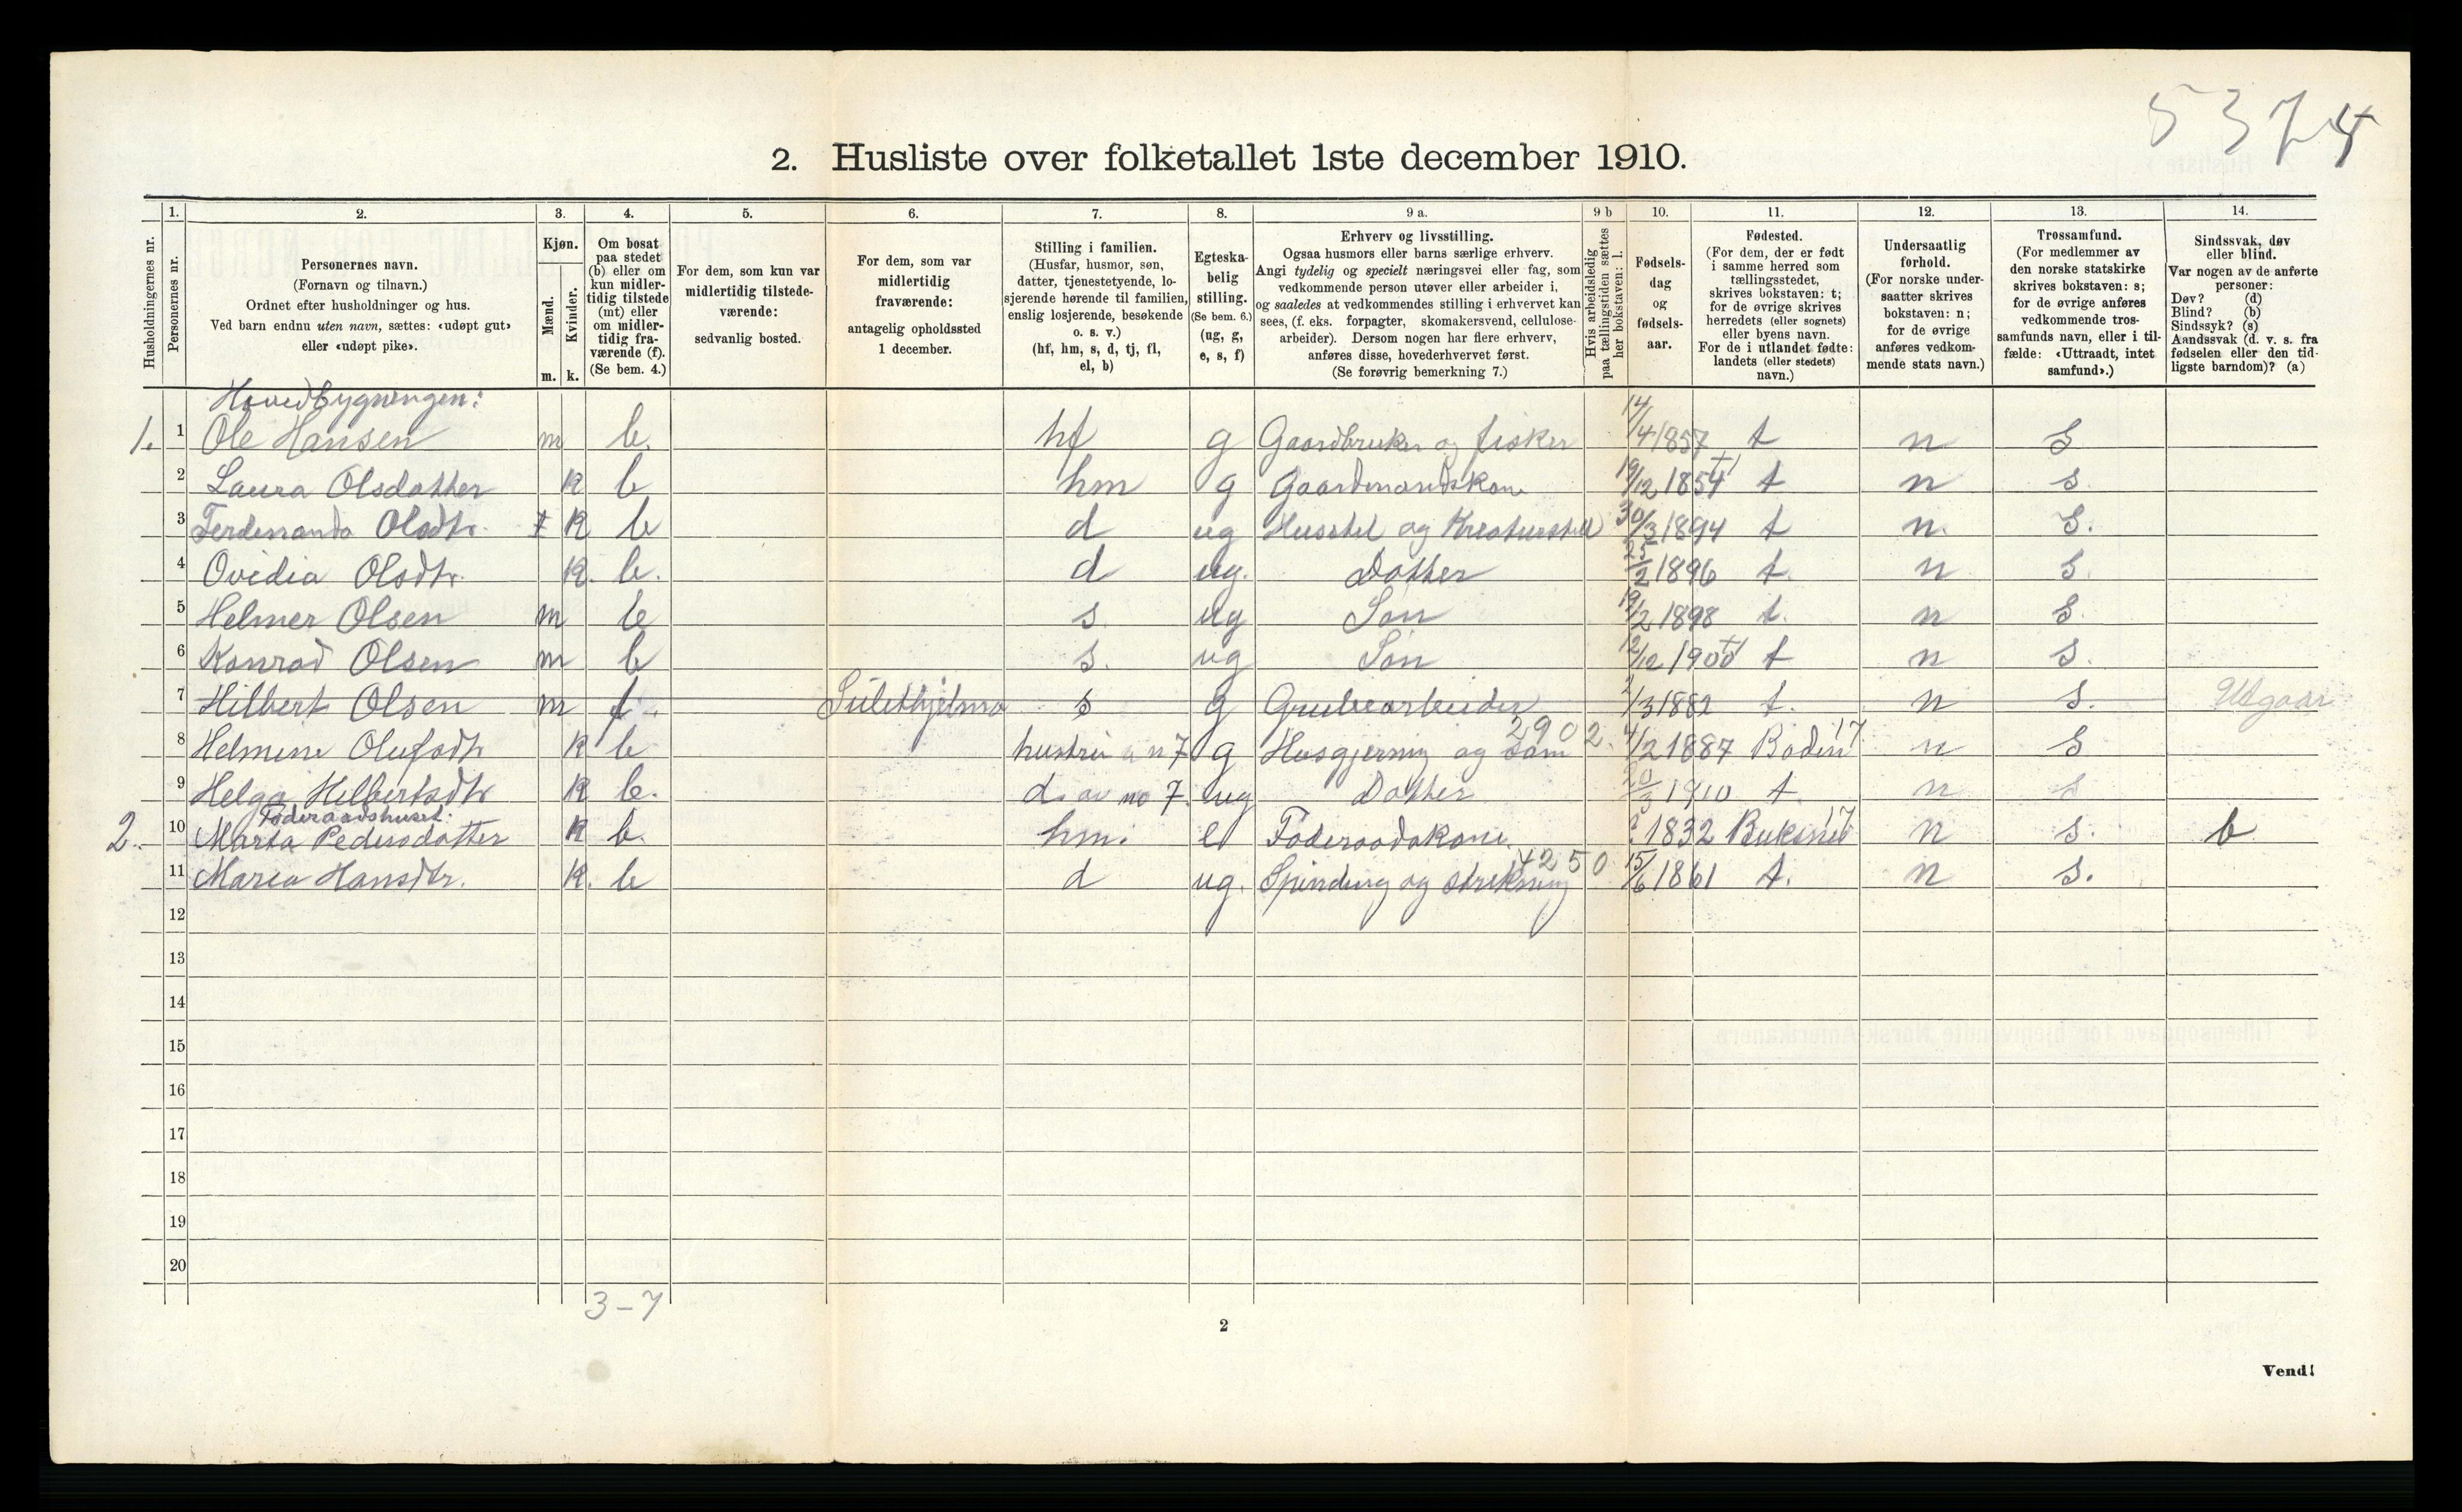 5374
2. Husliste over folketallet 1ste december 1910.
Husholdningernes nr.
1. Personernes nr.
2. Personernes navn.
(Fornavn og tilnavn.)
Ordnet efter husholdninger og hus.
Ved barn endnu uten navn, sættes: «udøpt gut»
eller «udøpt pike».
3. Kjøn.
Mænd. m.
Kvinder. k.
4. Om bosat
paa stedet
(b) eller om
kun midler-
tidig tilstede
(mt) eller
om midler-
tidig fra-
værende (f).
(Se bem. 4.)
5. For dem, som kun var
midlertidig tilstede-
værende:
sedvanlig bosted.
6. For dem, som var
midlertidig
fraværende:
antagelig opholdssted
1 december.
7. Stilling i familien.
(Husfar, husmor, søn,
datter, tjenestetyende, lo-
sjerende hørende til familien,
enslig losjerende, besøkende
o. s. v.)
(hf, hm, s, d, tj, fl,
el, b)
8. Egteska-
belig
stilling.
(Se bem. 6.)
(ug, g,
e, s, f)
9 a. Erhverv og livsstilling.
Ogsaa husmors eller barns særlige erhverv.
Angi tydelig og specielt næringsvei eller fag, som
vedkommende person utøver eller arbeider i,
og saaledes at vedkommendes stilling i erhvervet kan
sees, (f. eks. forpagter, skomakersvend, cellulose-
arbeider). Dersom nogen har flere erhverv,
anføres disse, hovederhvervet først.
(Se forøvrig bemerkning 7.)
9 b Hvis arbeidsledig
paa tællingstiden sættes
her bokstaven: l.
10. Fødsels-
dag
og
fødsels-
aar.
11. Fødested.
(For dem, der er født
i samme herred som
tællingsstedet,
skrives bokstaven: t;
for de øvrige skrives
herredets (eller sognets)
eller byens navn.
For de i utlandet fødte:
landets (eller stedets)
navn.)
12. Undersaatlig
forhold.
(For norske under-
saatter skrives
bokstaven: n;
for de øvrige
anføres vedkom-
mende stats navn.)
13. Trossamfund.
(For medlemmer av
den norske statskirke
skrives bokstaven: s;
for de øvrige anføres
vedkommende tros-
samfunds navn, eller i til-
fælde: «Uttraadt, intet
samfund».)
14. Sindssvak, døv
eller blind.
Var nogen av de anførte
personer:
Døv? (d)
Blind? (b)
Sindssyk? (s)
Aandssvak (d. v. s. fra
fødselen eller den tid-
ligste barndom)? (a)
Hovedbygningen:
1. 1 Ole Hansen m b. hf g Gaardbruker og fisker 14/4 1857 t n S
2 Laura Olsdatter k b hm g Gaardmandskone 19/12 1854 t n s.
3 Ferdinanda Olsdtr. k b d ug Husstel og Kreaturstell 30/3 1894 t n. S.
4 Ovidia Olsdtr. k. b. d ug. Datter /2 1896 t. n S.
5 Helmer Olsen m b s ug Søn 19/2 1898 t. n S.
6 Konrad Olsen m b s. ug Søn 12/12 1900 t n S.
7 Hilbert Olsen m f Sulithjelma s g Grubearbeider 2/3 1882 t. n s. Utgaar
2902
8 Helmine Olufsdtr k b hustru a n 7 g Husgjerning og søm 4/2 1887 Bodin 17 n S
9 Helga Hilbertsdtr k b. d. av no 7. ug Datter 20/3 1910 t. n s
Føderaadshuset:
2. 10 Marta Pedersdatter k b. hm. e Føderaadskone ? 1832 Buksnes 17 n s. b
4250
11 Maria Hansdtr. k. b d ug. Spinding og strikning 15/6 1861 t. n s.
12
13
14
15
16
17
18
19
20
3-7
2
Vend!